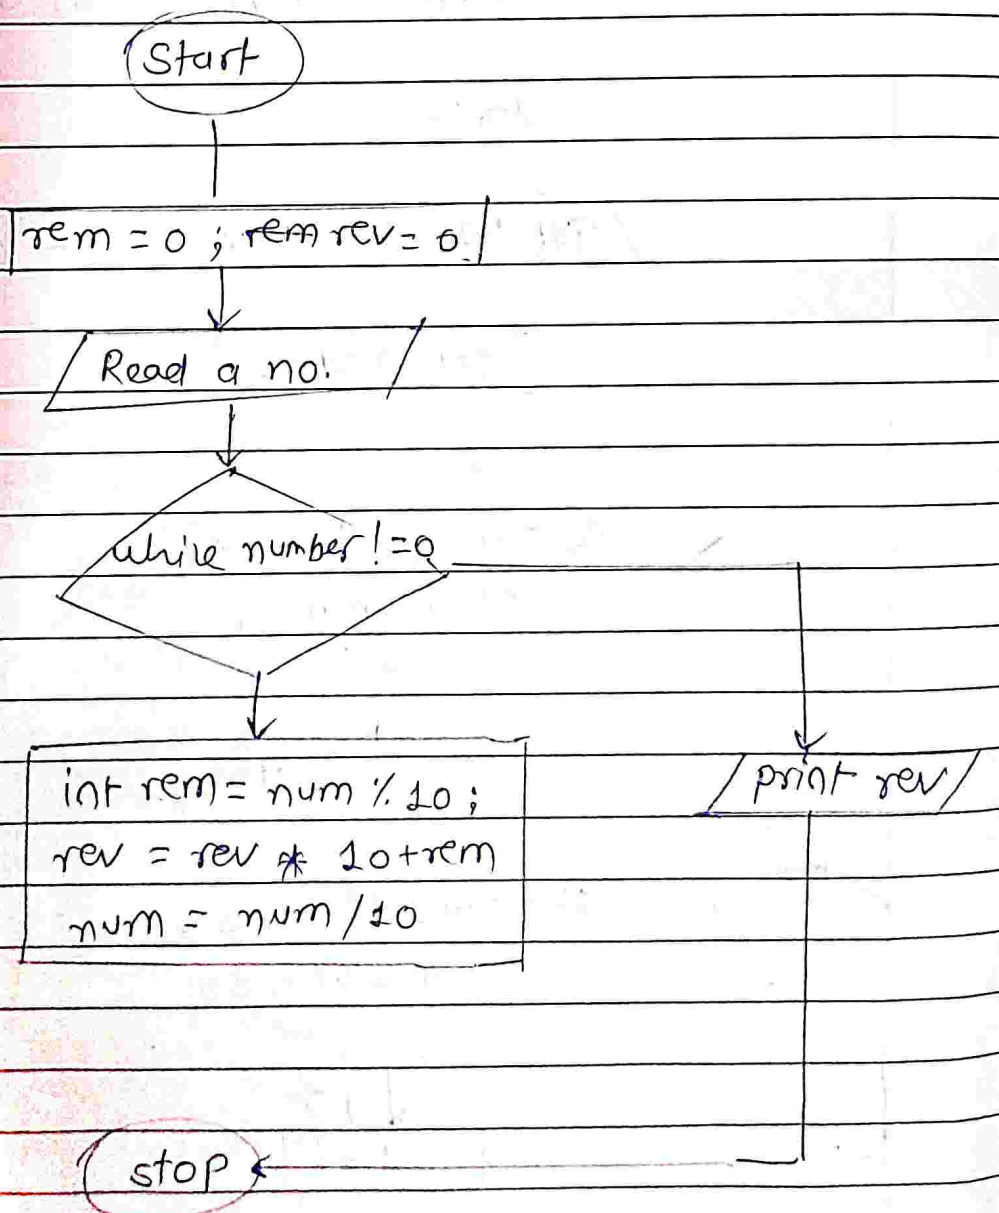 Start
rem = 0 ; rem rev = 0
Read a no.
while number != 0
int rem = num % 10 ;
rev = rev * 10 + rem
num = num / 10
print rev
stop